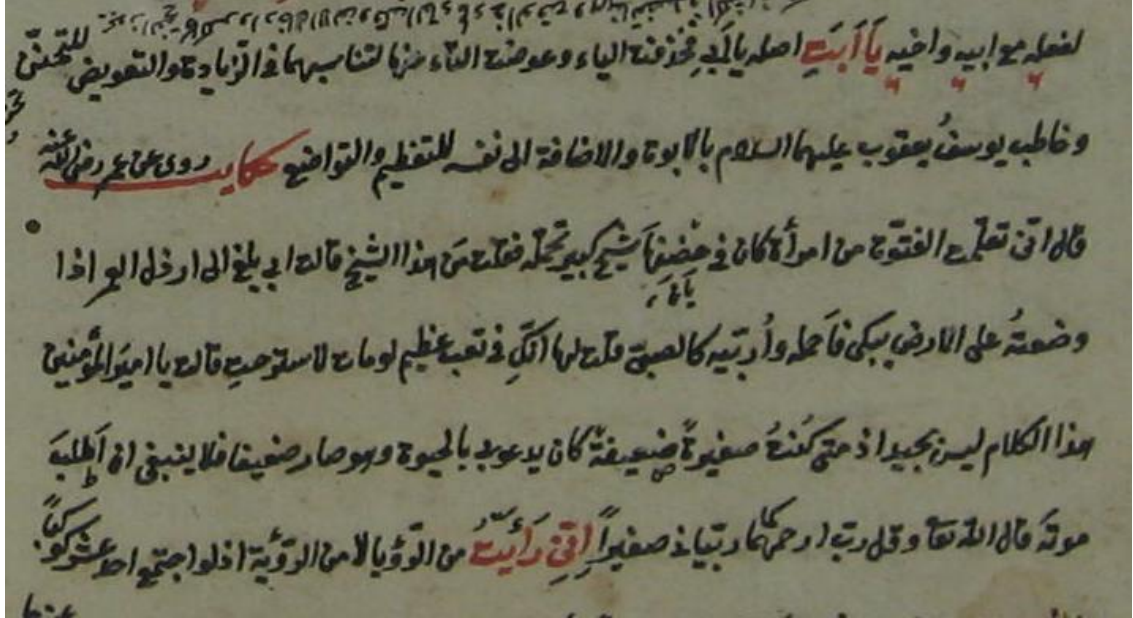 لفعله مع ابيه واخيه يَا أَبَتِ اصله يا ابي فحذفت الياء وعوضت التاء عنها لتناسبهما فى الزيادة والتعويض للتحنّن
وخاطب يوسفُ يعقوب عليهما السلام بالابوة والاضافة الى نفسه للتعظيم والتواضع حكايت روى عن عمر رضى الله عنه
قال انى تعلمت الفتوّة من امرأة كان فى حِضْنِهَا شيخ كبير تحمله فقلت مَن هذا الشيخ قالت ابى بلغ الى ارذل العمر اذا
وضعتهُ على الارض يبكى فاَحمله واُربّيه كالصبىّ قلت لها انّكِ فى تعب عظيم لو مات لاسترحتِ قالت يا امير المؤمنين
هذا الكلام ليس بجيد اذ متى كُنتُ صغيرةً ضعيفةً كان يدعو لى بالحيوة وهو صار ضعيفا فلا ينبغى ان اَطلبَ
موتهَ قال الله تعا وقل رب ارحمهما كما ربيانى صغيراً اِنّىِ رَأَيْتُ من الرؤيا لا من الرؤية اذ لو اجتمع احد عشر كوكباً